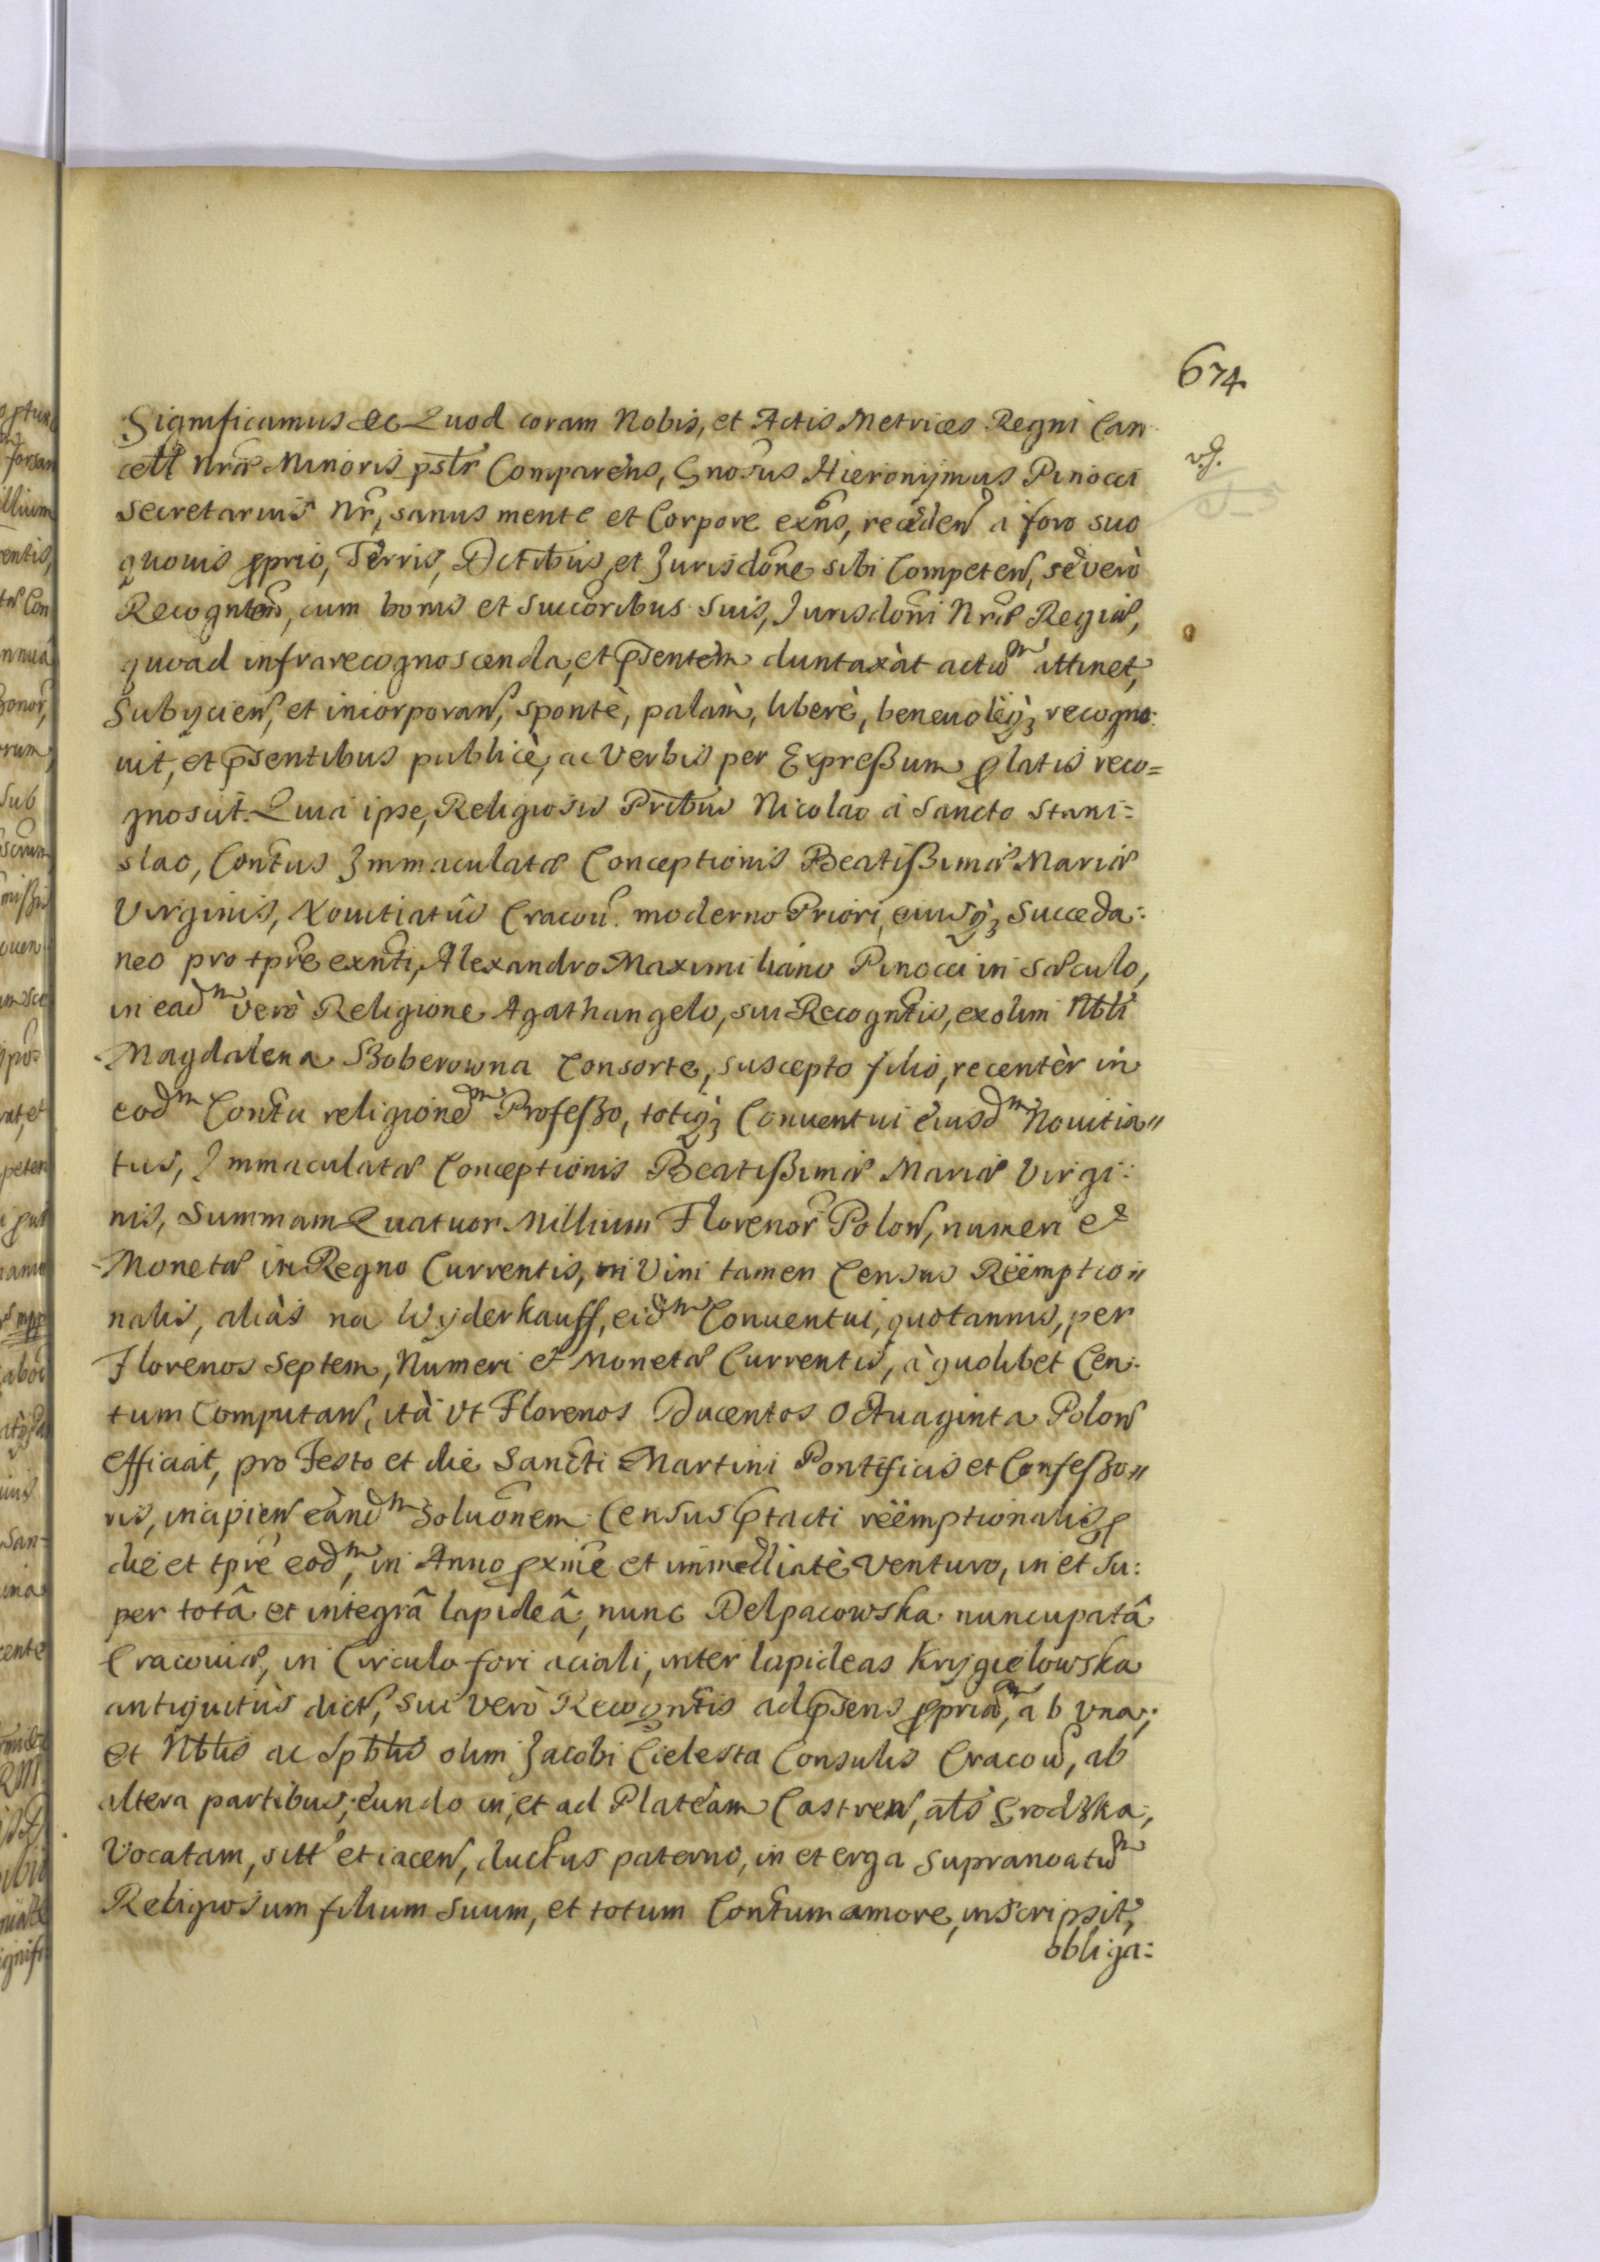 674
Significamus &c Quod coram Nobis, et Actis Metrices Regni Can
cell Nræ Minoris pslr Comparens, Gnosus Hieronijmus Pinocci
Secretarius Nr, sanus mente et Corpore exns, receden à foro suo
quovis pprio, Terris, Dictibus, et Jurisdone sibi Competen, se verò
Recognten, cum bonis et succoribus suis, Jurisdoni Nræ Regiæ,
quoad infrarecognoscenda, et psentem duntaxàt actum attinet,
Subijcien, et incorporan, spontè, palàm, liberè, benevoleq3 recogno:
uit, et psentibus publicè, ac Verbis per Expreßum platis reco=
gnoscit. Quia ipse, Religiosis Pribus Nicolao à Sancto Stani:
slao, Contus Immaculatæ Conceptionis Beatißimæ Mariæ
Virginis, Novitiatus Cracou. moderno Priori, eiusq3 Succeda:
neo pro tpre exnti, Alexandro Maximiliano Pinocci in Sæculo,
in eadm verò Religione Agathangelo, sui Recogntis, ex olim Nbli
Magdalena Boberowna Consorte, suscepto filio, recentèr in
eodm Contu religionedm Profeßo, totiq3 Conuentui eiusdm Nouitia"
tus, Immaculatæ Conceptionis Beatißimæ Mariæ Virgi:
nis, Summam Quatuor Millium Florenor Polon, numeri et
Monetæ in Regno Currentis, in Vim tamen Census Rëemptio"
nalis, aliàs na Wyderkauff, eidm Conuentui, quotannis, per
Florenos Septem, Numeri et Monetæ Currentis, à quolibet Cen:
tum Computan, ità Vt Florenos Ducentos Octuaginta Polon
efficiat, pro Festo et die Sancti Martini Pontificis et Confeßo"
ris, incipien eandm Soluonem Census ptacti rëemptionalis, p
die et tpre eodm, in Anno pximè et immediatè Venturo, in et Su:
per totâ et integrâ lapideâ, nunc Delpacowska nuncupatâ
Cracouiæ, in Circulo fori aciali, inter lapideas Krygielowska
antiquitùs dict, sui verò Recogntis ad psens ppriam, ab Vna;
et Nblis ac Spblis olim Jacobi Cielesta Consulis Cracou, ab
altera partibus; eundo in, et ad Plateam Castren, als Grodzka,
Vocatam, sitt et iacen, ductus paterno, in et erga supranoatum
Religiosum filium Suum, et totum Contum amore, inscripsit,
obliga: